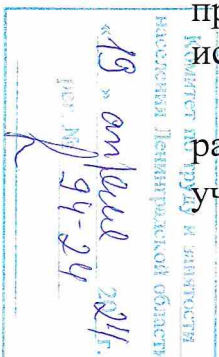 пр
ис
ра
уч
Комитет по труду и занятости
населения Ленинградской области
« 19 » апреля 2024 г.
рег. № 94-24